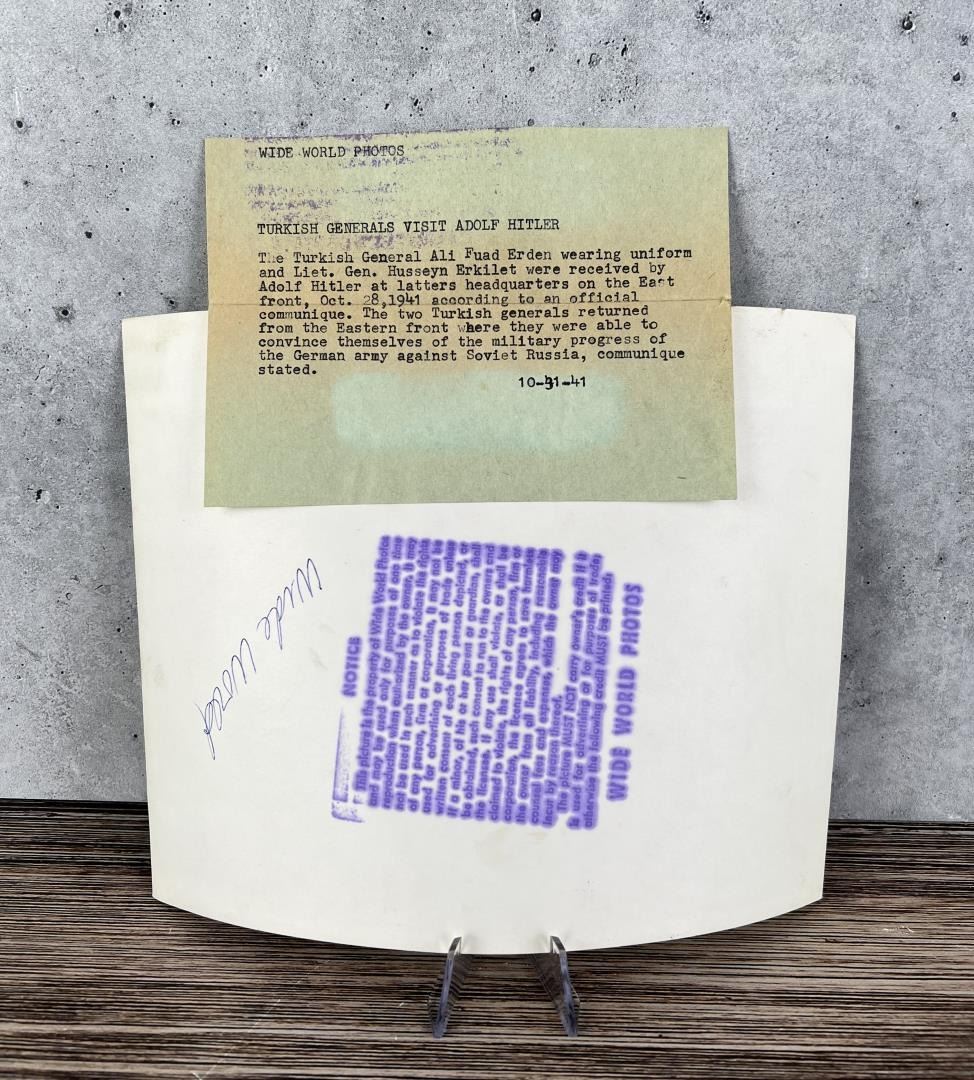 WIDE WORLD PHOTOS
TURKISH GENERALS VISIT ADOLF HITLER
The Turkish General Ali Fuad Erden wearing uniform
and Liet. Gen. Husseyn Erkilet were received by
Adolf Hitler at latters headquarters on the East
front, Oct. 28,1941 according to an official
communique. The two Turkish generals returned
from the Eastern front where they were able to
convince themselves of the military progress of
the German army against Soviet Russia, communique
stated.
10-31-41
Wide World
NOTICE
This picture is the property of Wide World Photos
and may be used only for purposes of one time
reproduction when authorized by the owner. It may
not be used in such manner as to violate the rights
of any person, firm or corporation, it may not be
used for advertising or purposes of trade unless
written consent of each living person depicted, or
if a minor, of his or her parent or guardian, shall
be obtained, such consent to run to the owners and
the licensee. If any use shall violate, or shall be
claimed to violate, the rights of any person, firm or
corporation, the licensee agrees to save harmless
the owner from all liability, including reasonable
counsel fees and expenses, which the owner may
incur by reason thereof.
The picture MUST NOT carry owner's credit if it
is used for advertising or for purposes of trade;
otherwise the following credit MUST be printed:
WIDE WORLD PHOTOS